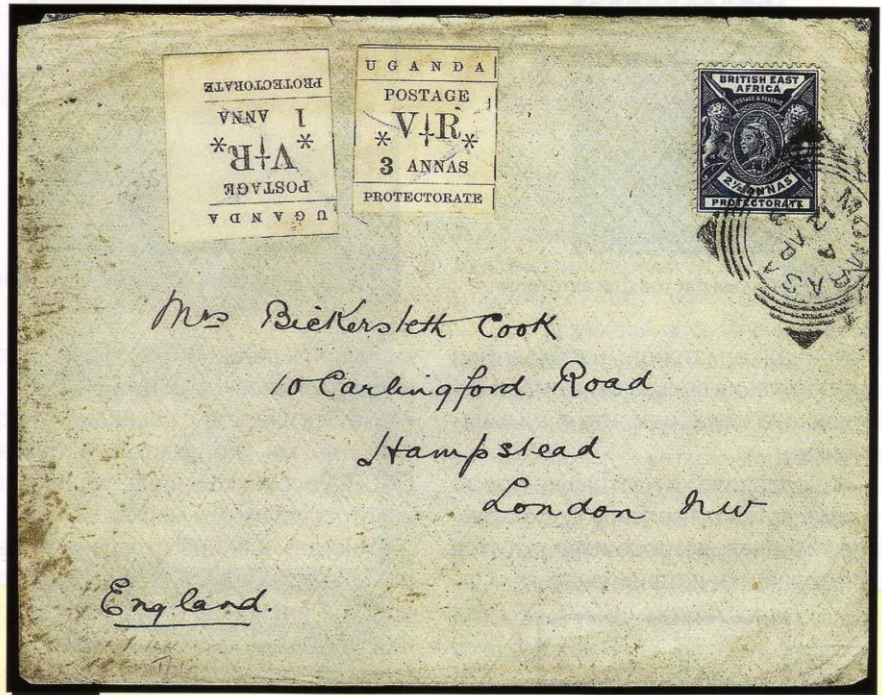 UGANDA
POSTAGE
* V R *
1 ANNA
PROTECTORATE
UGANDA
POSTAGE
* V R *
3 ANNAS
PROTECTORATE
BRITISH EAST
AFRICA
POSTAGE & REVENUE
2½ ANNAS
PROTECTORATE
MOMBASA
Mrs Bickersteth Cook
10 Carlingford Road
Hampstead
London NW
England.